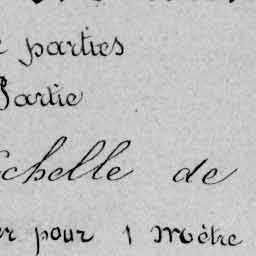 parties
Partie
chelle de
pour 1 mètre